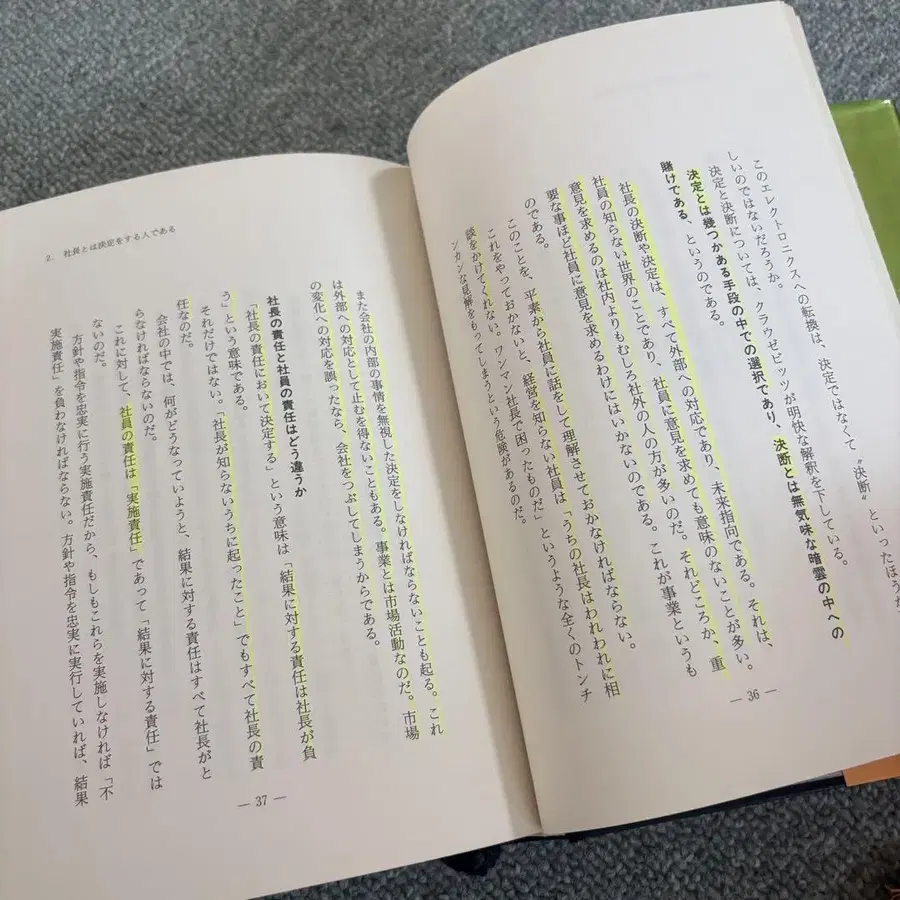 このエレクトロニクスへの転換は、決定ではなくて〝決断〟といったほうな
しいのではないだろうか。
決定と決断については、クラウゼビッツが明快な解釈を下している。
決定とは幾つかある手段の中での選択であり、決断とは無気味な暗雲の中への
賭けである、というのである。
社長の決断や決定は、すべて外部への対応であり、未来指向である。それは、
社員の知らない世界のことであり、社員に意見を求めても意味のないことが多い。
意見を求めるのは社内よりもむしろ社外の人の方が多いのだ。それどころか、重
要な事ほど社員に意見を求めるわけにはいかないのである。これが事業というも
のである。
このことを、平素から社員に話をして理解させておかなければならない。
これをやっておかないと、経営を知らない社員は「うちの社長はわれわれに相
談をかけてくれない。ワンマン社長で困ったものだ」というような全くのトンチ
ンカンな見解をもってしまうという危険があるのだ。
— 36 —
2. 社長とは決定をする人である
また会社の内部の事情を無視した決定をしなければならないことも起る。これ
は外部への対応として止むを得ないこともある。事業とは市場活動なのだ。市場
の変化への対応を誤ったなら、会社をつぶしてしまうからである。
社長の責任と社員の責任はどう違うか
「社長の責任において決定する」という意味は「結果に対する責任は社長が負
う」という意味である。
それだけではない。「社長が知らないうちに起ったこと」でもすべて社長の責
任なのだ。
会社の中では、何がどうなっていようと、結果に対する責任はすべて社長がと
らなければならないのだ。
これに対して、社員の責任は「実施責任」であって「結果に対する責任」では
ないのだ。
方針や指令を忠実に行う実施責任だから、もしもこれらを実施しなければ「不
実施責任」を負わなければならない。方針や指令を忠実に実行していれば、結果
— 37 —